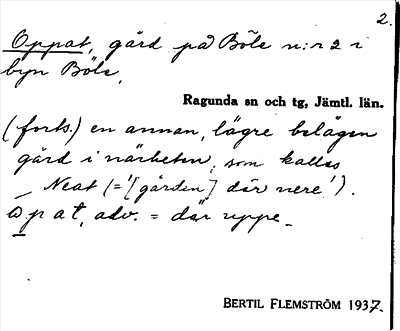 2.
Oppat, gård på Böle n:r 2 i
byn Böle,
Ragunda sn och tg, Jämtl. län.
(forts.) en annan, lägre belägen
gård i närheten, som kallas
Neat (= '[gården] där nere').
opat, adv. = där uppe.
BERTIL FLEMSTRÖM 1937.